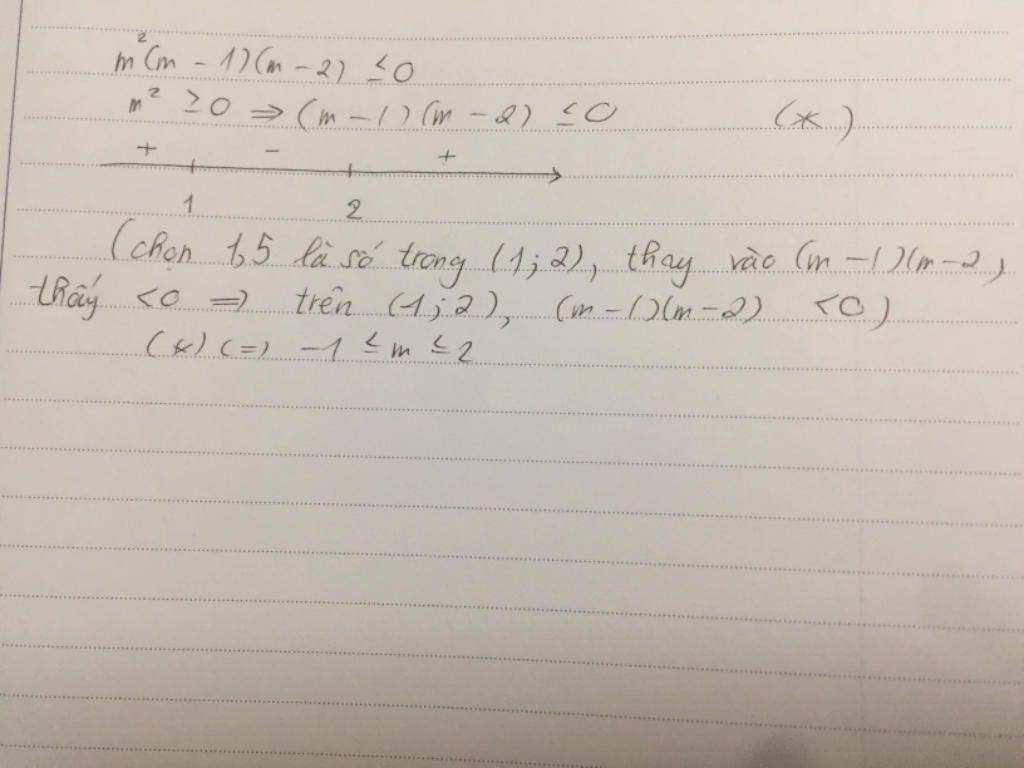 m²(m - 1)(m - 2) ≤ 0
m² ≥ 0 ⇒ (m - 1)(m - 2) ≤ 0 (*)
+ - +
1 2
(chọn 1,5 là số trong (1; 2), thay vào (m - 1)(m - 2)
thấy < 0 ⇒ trên (1; 2), (m - 1)(m - 2) < 0)
(*) (=) -1 ≤ m ≤ 2